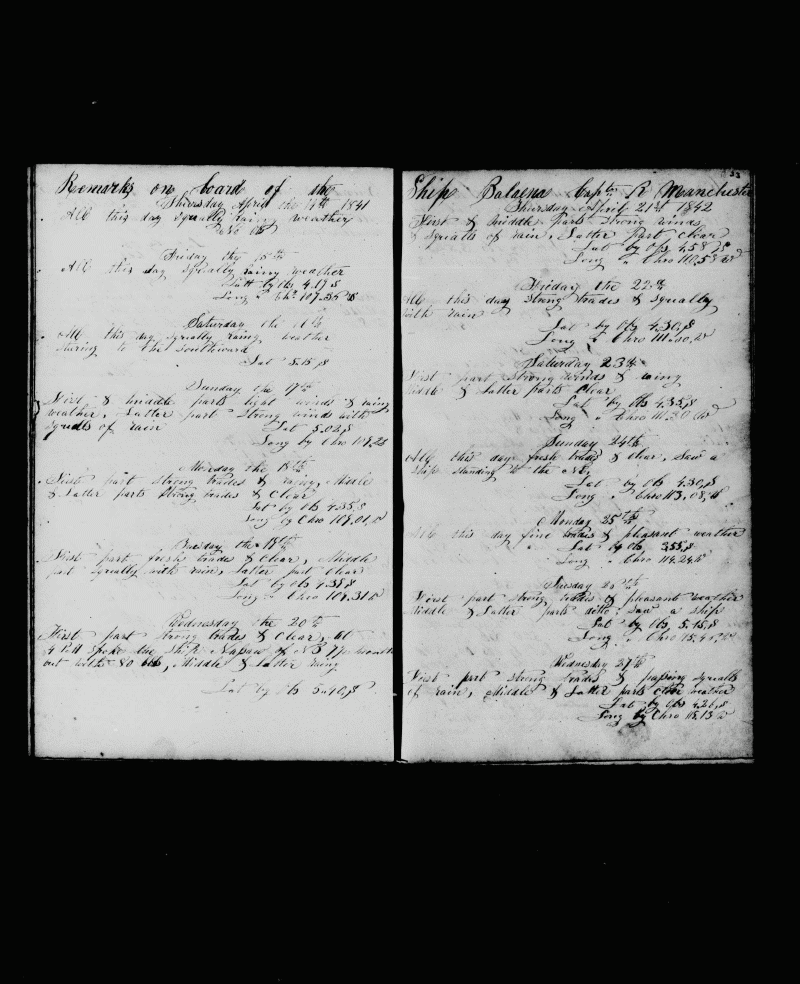 Remarks on board of the
Thursday April the 14th 1841
All this day squally rainy weather
No Obs
Friday the 15th
All this day squally rainy weather
Latt by Obs 4.17 S
Long " Chr 107.34 W
Saturday the 16th
All this day squally rainy weather
steering to the southward
Lat 5.15, S
Sunday the 17th
First & middle parts light winds & rainy
weather, Latter part strong winds with
squalls of rain
Lat 5.02, S
Long by Chro
Monday the 18th
First part strong trades & rainy, Middle
& Latter parts strong trades & Clear
Lat by Obs 4.35, S
Long by Chro 109.01, W
Tuesday the 19th
First part fresh trades & Clear, Middle
part squally with rain, Latter part clear
Lat by Obs 4.38, S
Long " Chro 109.31, W
Wednesday the 20th
First part strong trades & Clear, at
4 PM spoke the Ship of NB months
out with 80 bbls, Middle & Latter rainy
Lat by Obs 5.40, S
53
Ship Balaena Captn R Manchester
Thursday April 21st 1842
First & middle parts strong winds
& squalls of rain, Latter Part clear
Lat by Obs 4.58, S
Long " Chro 110.58 W
Friday the 22nd
All this day strong trades & squally
with rain
Lat by Obs 4.30, S
Long " Chro 111.00, W
Saturday 23rd
First part strong winds & rainy
Middle & Latter parts clear
Lat by Obs 4.35, S
Long " Chro 111.30 W
Sunday 24th
All this day fresh trades & clear, Saw a
Ship standing to the
Lat by Obs 4.30, S
Long " Chro 113.08, W
Monday 25th
All this day fine trades & pleasant weather
Lat by Obs 3.55, S
Long " Chro 114.24 W
Tuesday 26th
First part strong trades & pleasant weather
Middle & Latter parts ditto, saw a ship
Lat by Obs 5.15, S
Long " Chro
Wednesday 27th
First part strong trades & passing squalls
of rain, Middle & Latter parts clear weather
Lat by Obs 4.26, S
Long by Chro 115.13 W